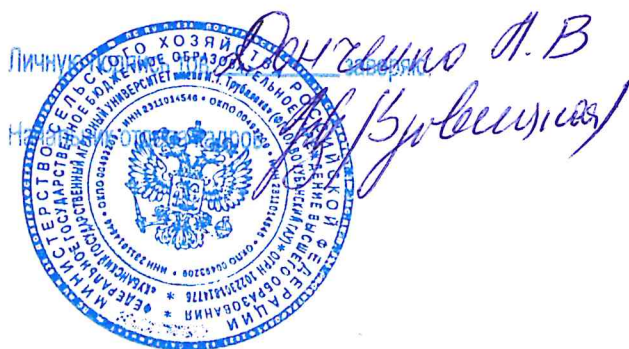 Личную подпись тов. Донченко А.В заверяю
Начальник отдела кадров
МИНИСТЕРСТВО СЕЛЬСКОГО ХОЗЯЙСТВА РОССИЙСКОЙ ФЕДЕРАЦИИ
ФЕДЕРАЛЬНОЕ ГОСУДАРСТВЕННОЕ БЮДЖЕТНОЕ ОБРАЗОВАТЕЛЬНОЕ УЧРЕЖДЕНИЕ ВЫСШЕГО ОБРАЗОВАНИЯ
«КУБАНСКИЙ ГОСУДАРСТВЕННЫЙ АГРАРНЫЙ УНИВЕРСИТЕТ имени И.Т. Трубилина»
ОГРН 1022301814776
ИНН 2311014546 • ОКПО 00493209